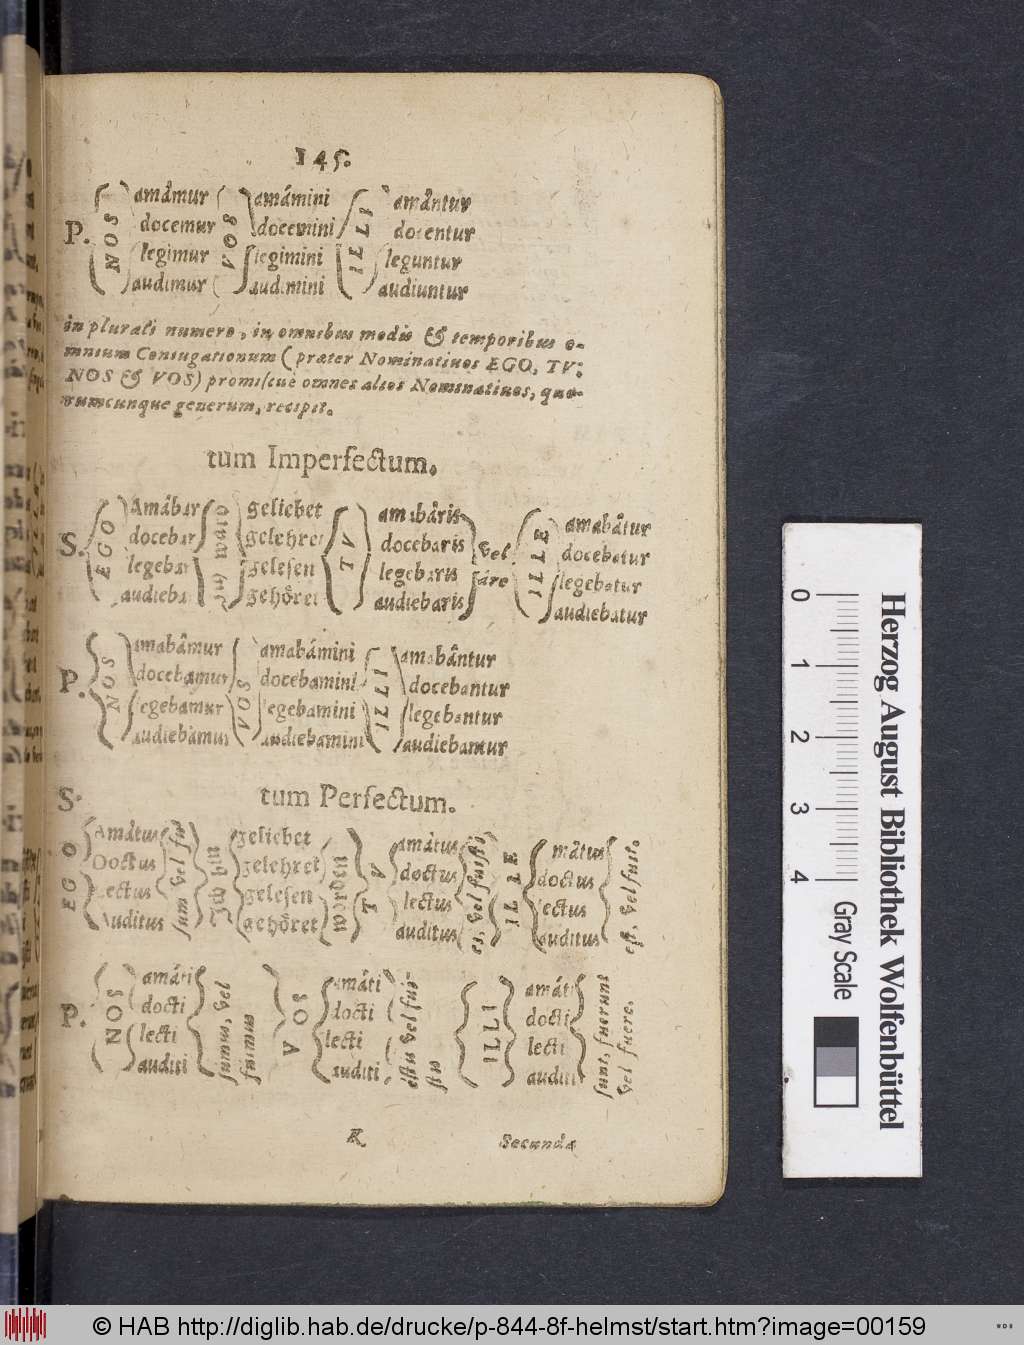 145.
P. NOS amâmur VOS amámini ILLI amântur
docemur docemini docentur
legimur legimini leguntur
audimur audimini audiuntur
in plurali numero, in omnibus modis & temporibus o-
mnium Coniugationum (præter Nominatiuos EGO, TV:
NOS & VOS) promiscue omnes alios Nominatiuos, quo-
rumcunque generum, recipit.
tum Imperfectum.
S. EGO Amâbar Ich ward geliebet TV amabâris vel áre ILLE amabâtur
docebar gelehret docebaris docebatur
legebar gelesen legebaris legebatur
audieba gehöret audiebaris audiebatur
P. NOS amabâmur VOS amabámini ILLI amabântur
docebamur docebamini docebantur
legebamur legebamini legebantur
audiebamur audiebamini audiebamur
tum Perfectum.
S. EGO Amâtus sum vel fui Ich bin geliebet worden TV amâtus es, vel fuisti ILLE mâtus est, vel fuit.
Doctus gelehret doctus doctus
Lectus gelesen lectus lectus
Auditus gehöret auditus auditus
P. NOS amáti sumus, vel fuimus VOS amâti estis vel fuistis ILLI amáti sunt, fuerunt vel fuere.
docti docti docti
lecti lecti lecti
auditi auditi auditi
K Secunda
0 1 2 3 4
Gray Scale
Herzog August Bibliothek Wolfenbüttel
© HAB http://diglib.hab.de/drucke/p-844-8f-helmst/start.htm?image=00159